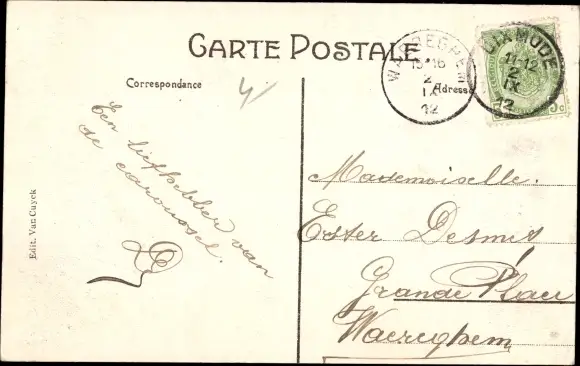 CARTE POSTALE
Correspondance
Adresse
WAEREGHEM
15-16
2
IX
12
DIXMUDE
11-12
2
IX
12
5c
Een liefhebber van
de carousel.
Mademoiselle.
Ester Desmet
Grande Place
Waereghem
Edit. Van Cuyck